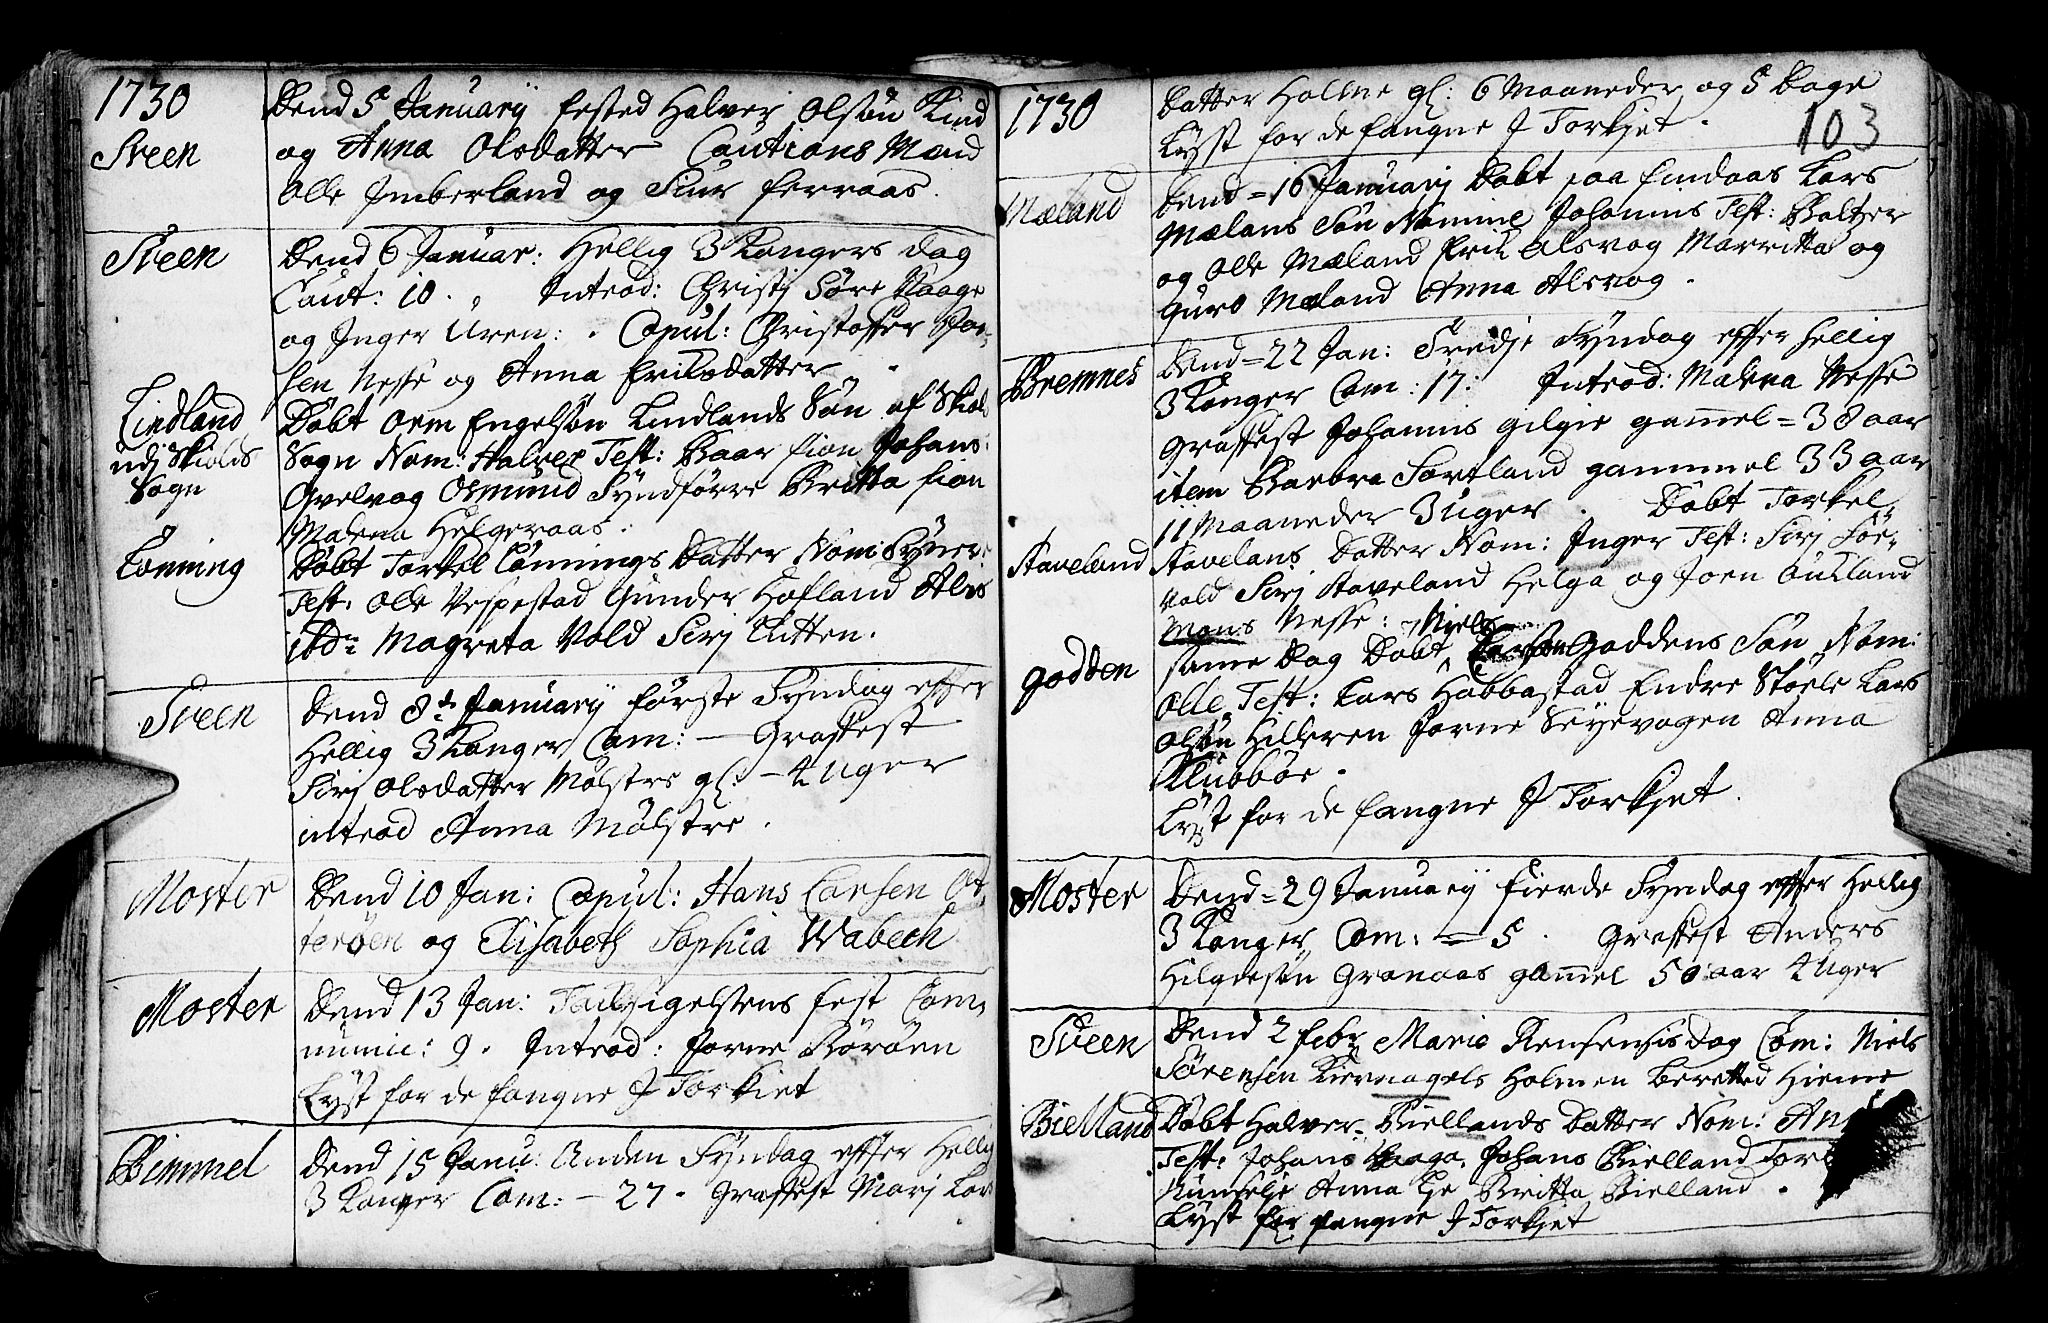 1730
Sveen
Dend 5 Januarij fested Halver Olsøn Lind
og Anna Olsdatter Cautions Mænd
Olle Imberland og Siur ferraas.
Sveen
Dend 6 Januar: Hellig 3 Kongers dag
Caut: 10. Introd: Christj Søre Waage
og Inger Uren: . Copul: Christoffer
sen Nesse og Anna Eriksdatter
Lindland
udj Skiolds
Sogn
Døbt Orm Engelsøn Lindlands Søn af Skiolds
Sogn Nom: Halver Test: Baar fion Johans:
Qvelvog Osmund Syndførre Britta fion
Malena Helgeraas:
Lønning
Døbt Torkel Lønnings Datter Nom:
Test: Olle Vespestad Gunder Hofland
ibd: Magreta Vold Sirj Kitten.
Sveen
Dend 8de Januarij første Syndag effter
Hellig 3 Konger Com: — Graffest
Sirj Olsdatter Mølstre gl: — 4 Uger
introd Anna Mølstre.
Moster
Dend 10 Jan: Copul: Hans Larsen Ot,
terøen og Elisabeth Sophia Wabech
Moster
Dend 13 Jan: Tacksigelsens fest Com,
munic: 9. Introd: Jorne Børøen
Lyst for de fangne J Torkiet
Bimmel
Dend 15 Janu: Anden Syndag effter Hellig
3 Konger Com: — 27. Graffest Marj Lars
1730
103
Datter Hollne gl: 6 Maaneder og 5 Dage
Lyst for de fangne J Torkiet.
Mæland
Dend = 16 Januarij Døbt paa Findaas Lars
Mælans Søn Nomine Johanns Test: Baltzer
og Olle Mæland Erik Alsvog Marritta og
Guro Mæland Anna Alsvog.
Bremnes
Dend = 22 Jan: Tredje Syndag effter hellig
3 Konger Com: 17: Introd: Malena Nesse
Graffest Johannis Gilgie gammel = 38 aar
item Barbra Sortland gammel 33 aar
11 Maaneder 3 uger. Døbt Torkel
Staveland
Stavelans Datter Nom: Inger Test: Sirj Sør,
vold Sirj Staveland Helga og Joen Økland
Mons Nesse:
Godden
same Dag Døbt Niels Goddens Søn Nom:
Olle Test: Lars Habbastad Endre Støele Lars
Olsøn Hilleren Jorne Seyevogen Anna
Klubbøe.
Lyst for de fangne J Torkjet.
Moster
Dend = 29 Januarij fierde Syndag effter Hellig
3 Konger Com: = 5. Graffest Anders
Hilgdesøn Gronaas gammel 50 aar 4 Uger
Sveen
Dend 2 febr Marie Rensensis Dag Com: Niels
Sørensen Kiernagels Holmen beretted Hieme
Bielland
Døbt Halver Biellands Datter Nom: An
Test: Johans Waage Johans Bielland
Anna Britta Bielland.
Lyst for fangne J Torkjet